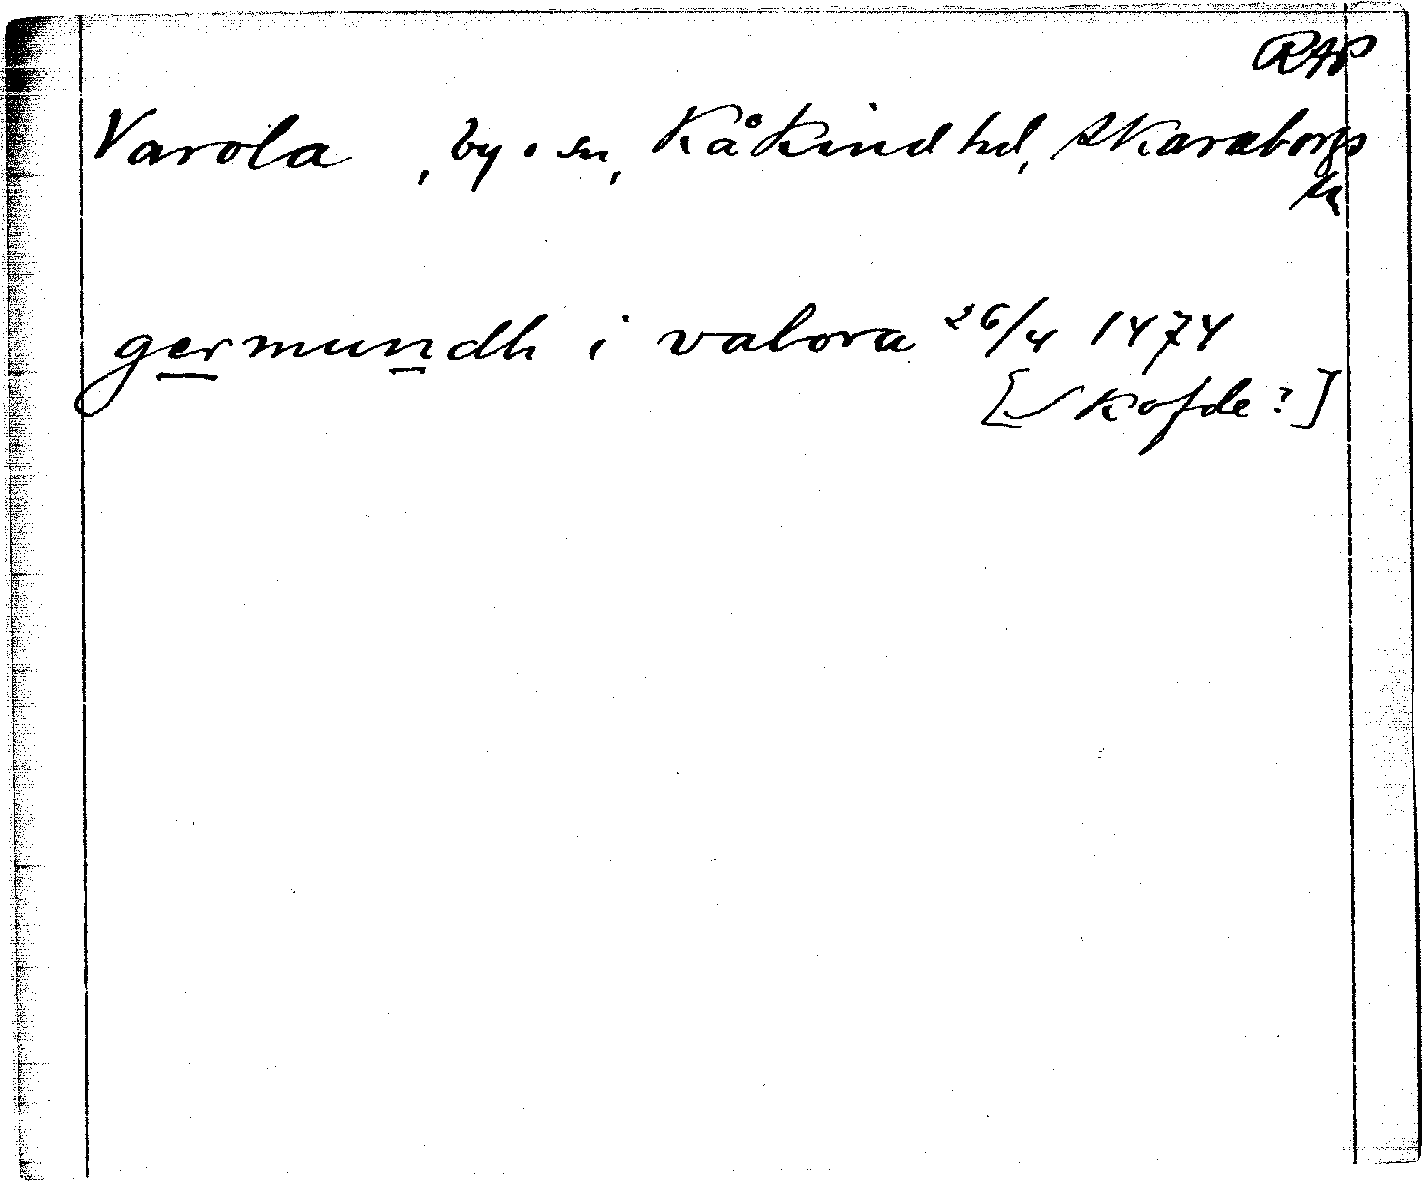 RAP
Varola, by o sn, Kåkind hd, Skaraborgs
ln
germundh i valora 26/4 1474
[Skofde?]